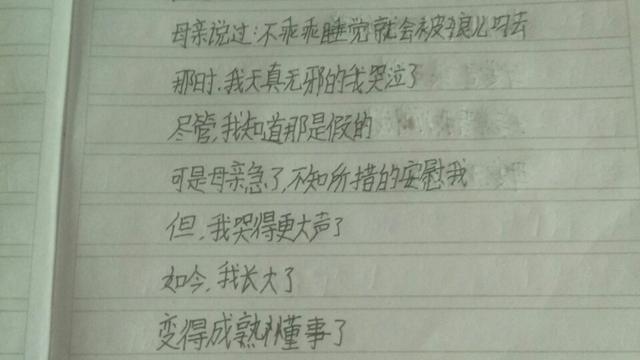 母亲说过:不乖乖睡觉就会被狼儿叼去
那时,我天真无邪的我哭泣了
尽管,我知道那是假的
可是母亲急了,不知所措的安慰我
但,我哭得更大声了
如今,我长大了
变得成熟懂事了